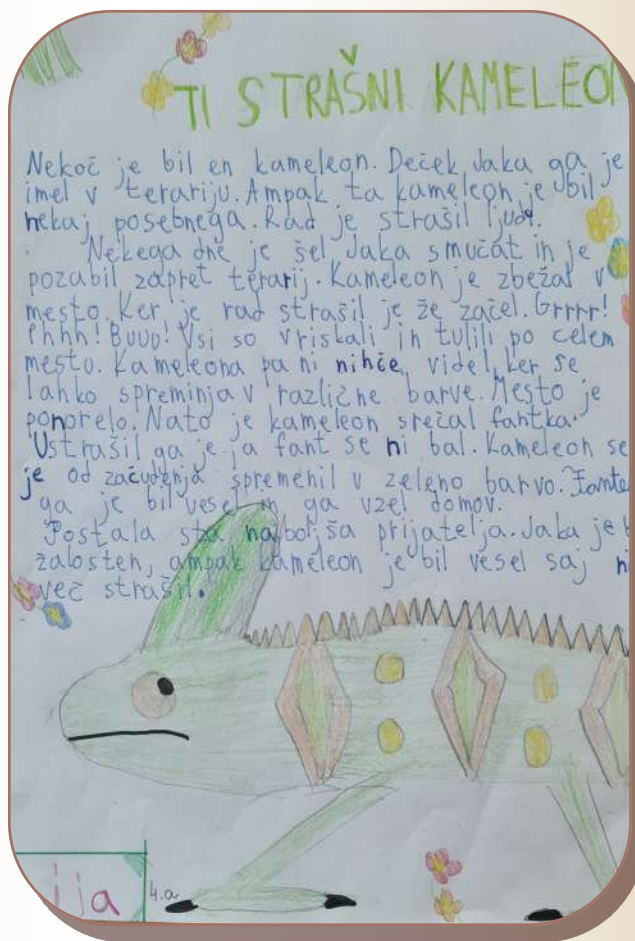 TI STRAŠNI KAMELEON
Nekoč je bil en kameleon. Deček Jaka ga je
imel v terariju. Ampak ta kameleon je bil
nekaj posebnega. Rad je strašil ljudi.
Nekega dne je šel Jaka smučat in je
pozabil zapret terarij. Kameleon je zbežal v
mesto. Ker je rad strašil je že začel. Grrrr!
Phhh! Buuu! Vsi so vriskali in tulili po celem
mesto. Kameleona pa ni nihče videl, ker se
lahko spreminja v različne barve. Mesto je
ponorelo. Nato je kameleon srečal fantka.
Ustrašil ga je ja fant se ni bal. Kameleon se
je od začudenja spremenil v zeleno barvo.
ga je bil vesel in ga vzel domov.
Postala sta najboljša prijatelja. Jaka je
žalosten, ampak kameleon je bil vesel saj
več strašil.
ija
4.a